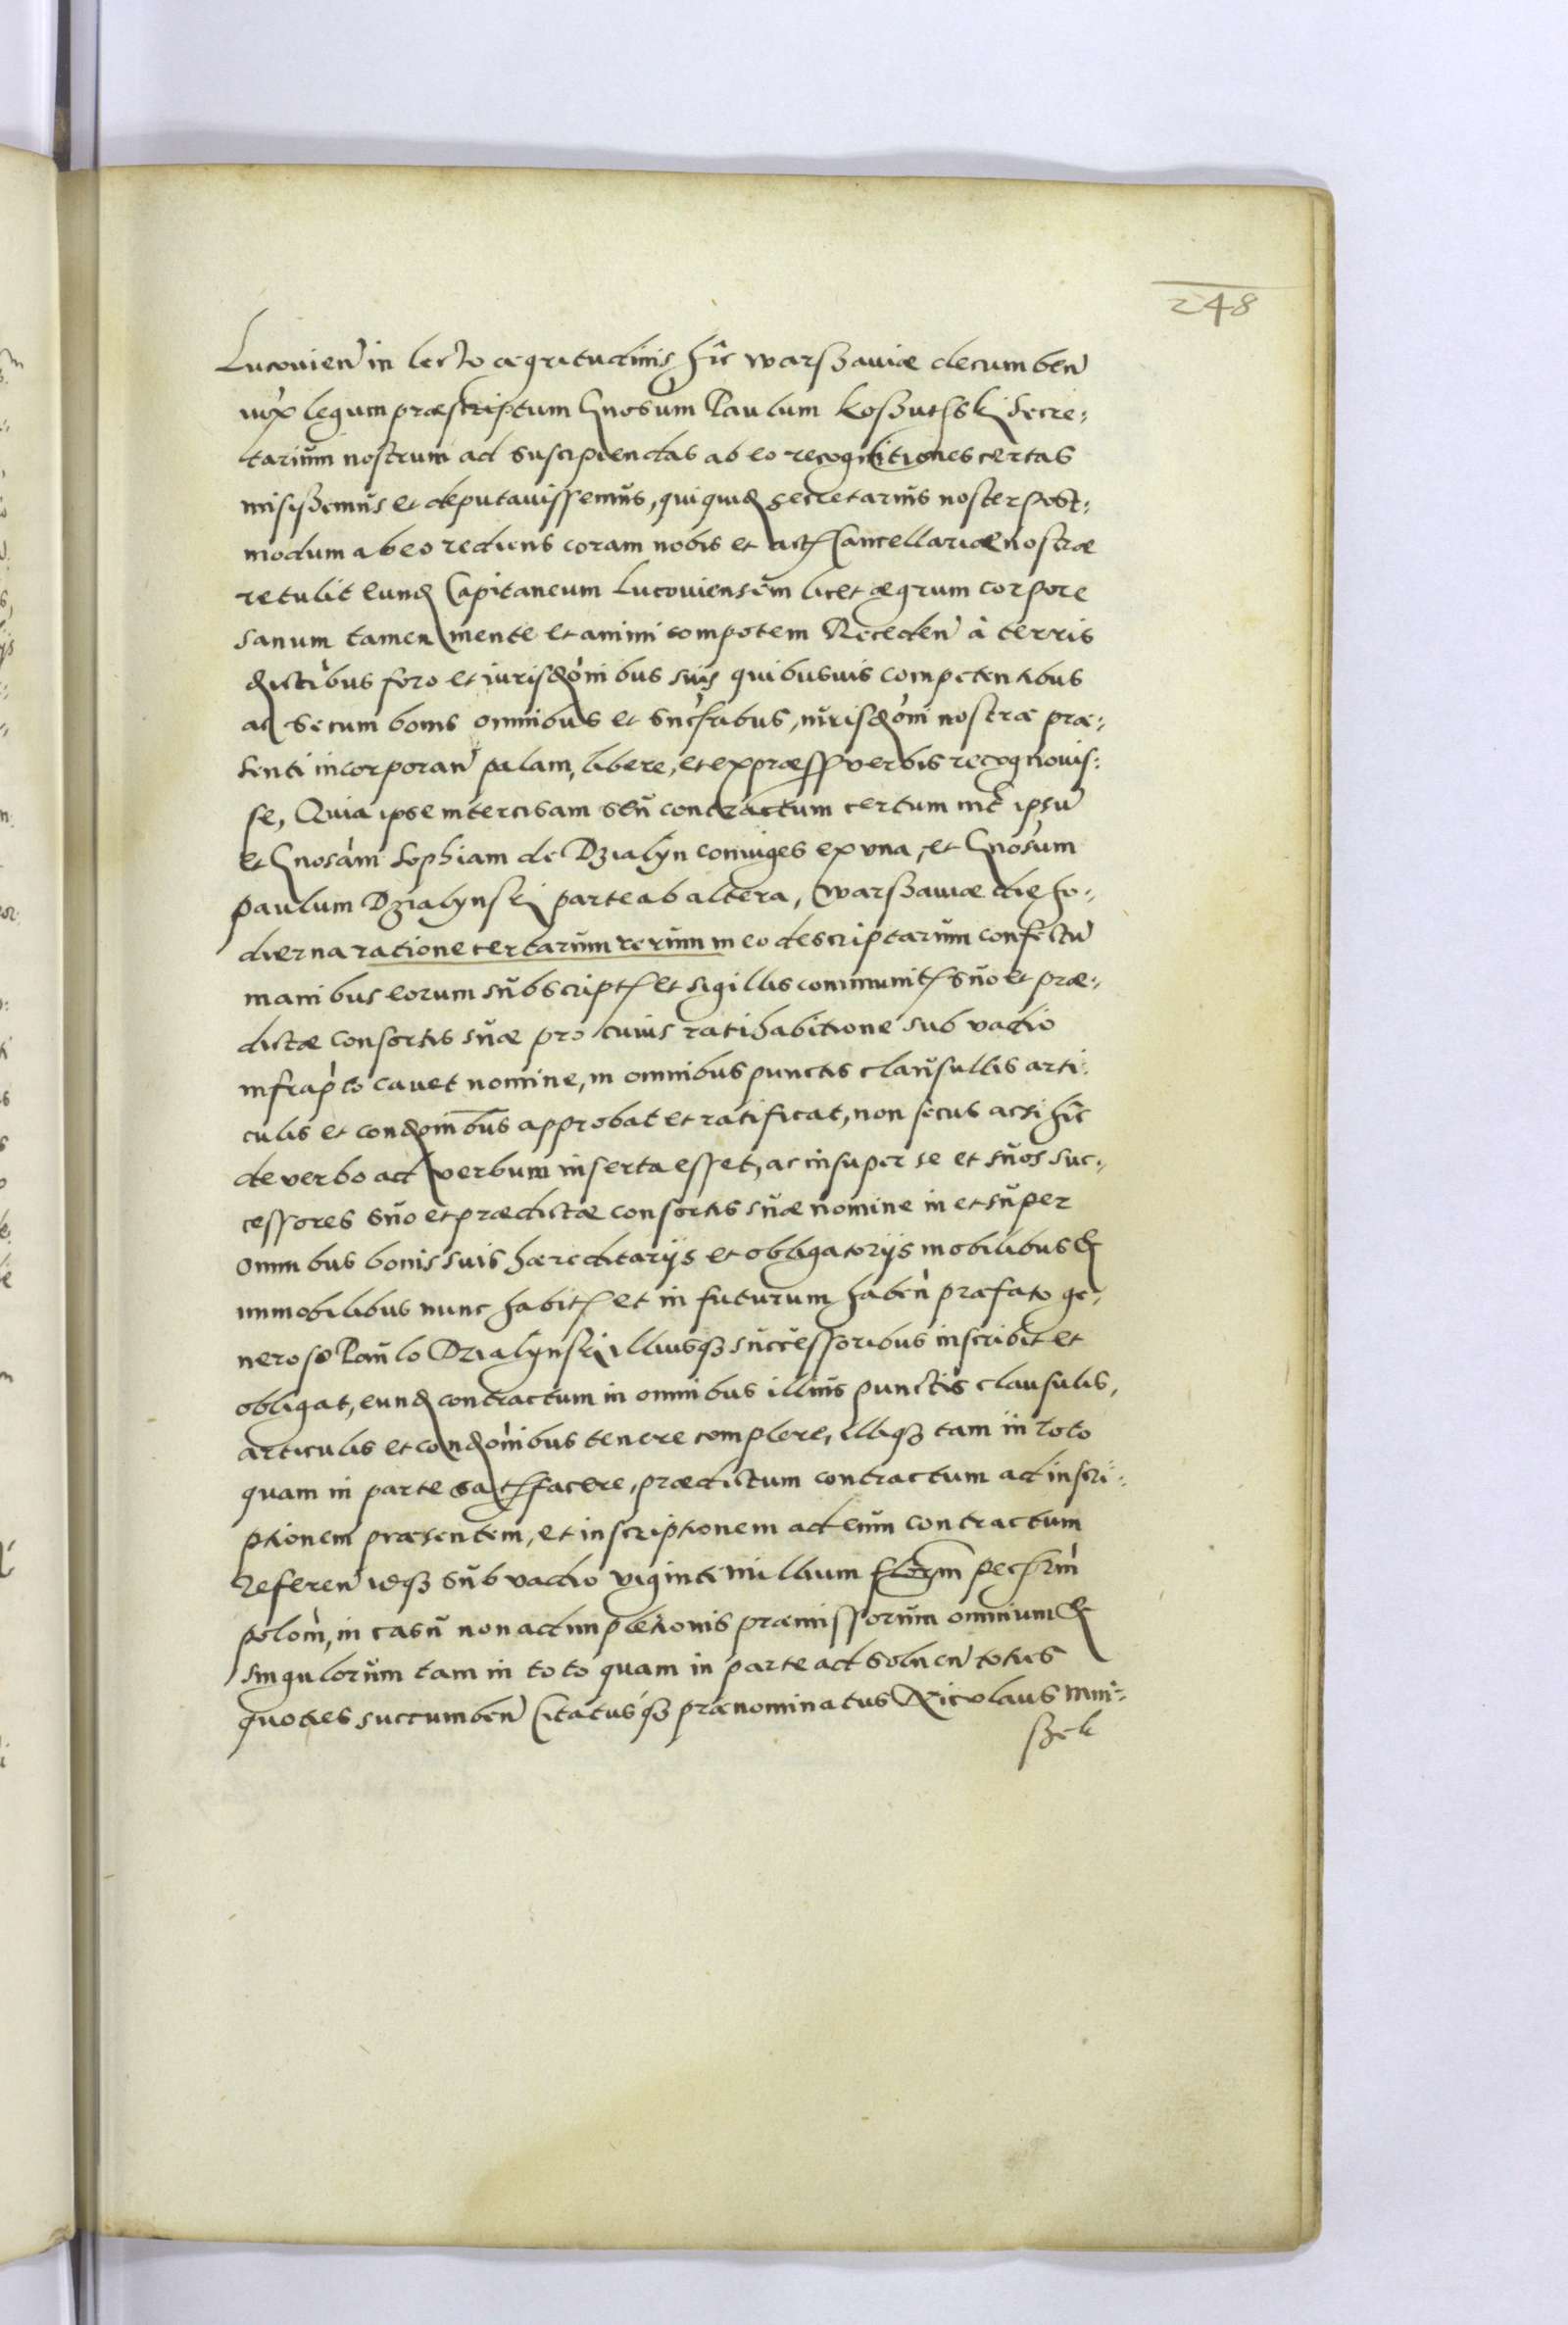 248
Lucovien in lecto aegritudinis hic Warszaviae decumben
iux legum praescriptum Gnosum Paulum Koszuthski Secre:
tarium nostrum ad suscipiendas ab eo recognitiones certas
misissemus et deputavissemus, qui quid secretarius noster post:
modum ab eo rediens coram nobis et act Cancellariae nostrae
retulit eund Capitaneum Lucoviensem licet aegrum corpore
sanum tamen mente et animi compotem Receden à terris
distibus foro et iurisdonibus suis quibusvis competentibus
ac se cum bonis omnibus et succrbus, iurisdoni nostrae prae:
senti incorporan palam, libere, et expraess verbis recognovis:
se, Quia ipse intercisam seu contractum certum int ipsu
et Gnosam Sophiam de Dzialyn coniuges ex una, et Gnosum
Paulum Dzialynski parte ab altera, Warszaviae die ho:
dierna ratione certarum rerum in eo descriptarum confectu
manibus eorum subscript et sigillis communit suo et prae:
dictae consortis suae pro cuius ratihabitione sub vadio
infrapto cavet nomine, in omnibus punctis clausullis arti:
culis et condonibus approbat et ratificat, non secus acsi hic
de verbo ad verbum inserta esset, ac insuper se et suos suc:
cessores suo et praedictae consortis suae nomine in et super
omnibus bonis suis haereditariis et obligatoriis mobilibus et
immobilibus nunc habit et in futurum haben praefato ge:
neroso Paulo Dzialynski illiusq successoribus inscribit et
obligat, eund contractum in omnibus illius punctis clausulis,
articulis et condonibus tenere complere, illiq tam in toto
quam in parte satfacere, praedictum contractum ad inscri:
ptionem praesentem, et inscriptionem ad eum contractum
referen idq sub vadio viginti millium florem pec
polon, in casu non adimpletionis praemissorum omnium et
singulorum tam in toto quam in parte ad solven toties
quoties succumben Citatusq praenominatus Nicolaus Mni:
szek